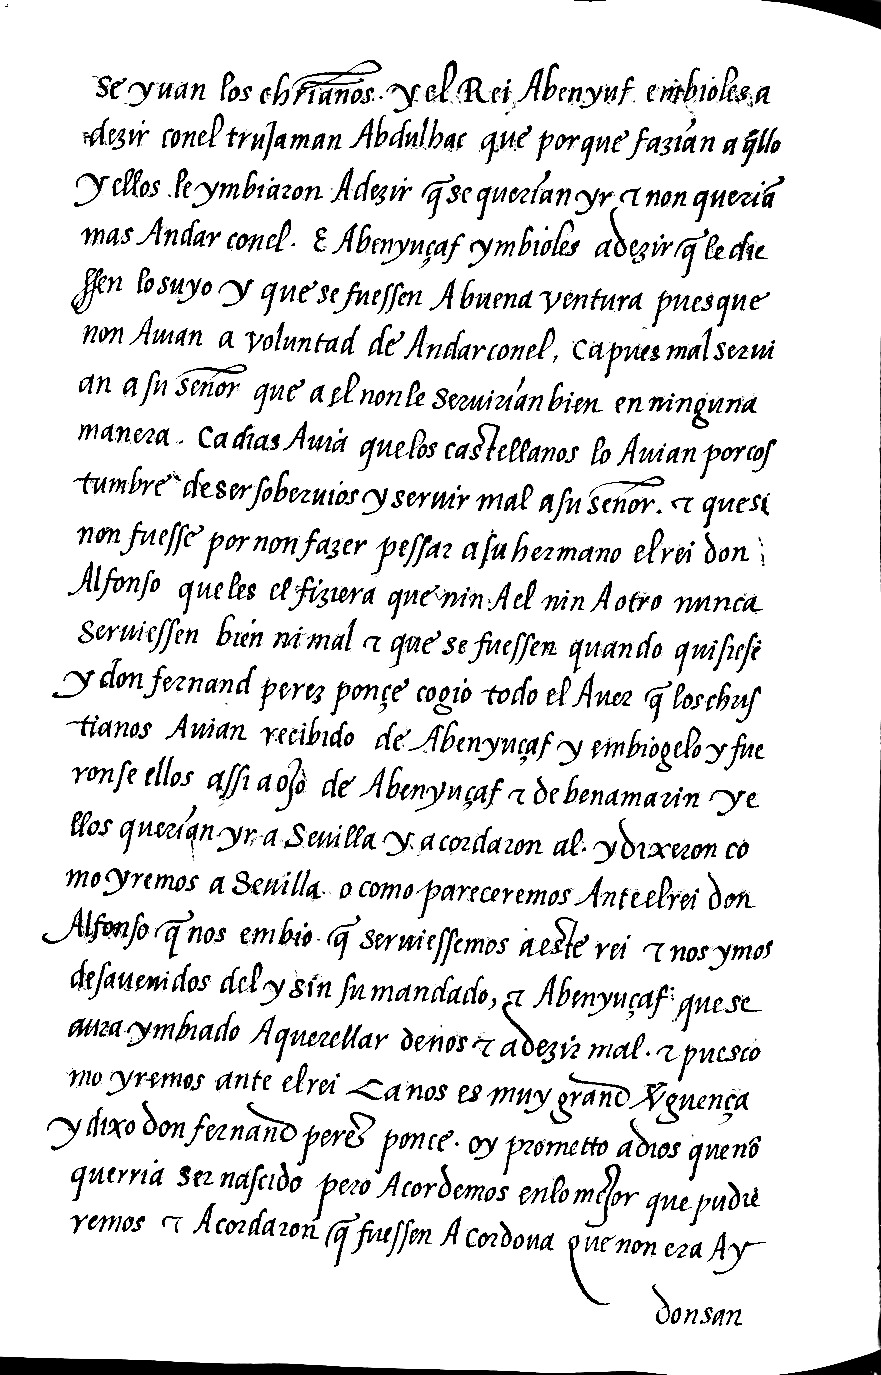 se yuan los chrianos. y el Rei Abenyuf. embioles a
dezir conel trujaman Abdulhac que porque fazian a q̃llo
y ellos le ymbiaron A dezir q̃ se querian yr ⁊ non queriã
mas Andar conel. E Abenyuçaf ymbioles adezir q̃ le die
ssen lo suyo y que se fuessen A buena ventura pues que
non Auian a voluntad de Andar conel, ca pues mal serui
an a su señor que a el non le seruirian bien en ninguna
manera. ca dias Auia que los castellanos lo Auian por cos
tumbre de ser soberuios y seruir mal a su señor. ⁊ que si
non fuesse por non fazer pessar a su hermano el rei don
Alfonso que les el fiziera que nin A el nin A otro nunca
seruiessen bien ni mal ⁊ que se fuessen quando quisiese
y don fernand perez ponçe cogio todo el Auer q̃ los chris
tianos Auian recibido de Abenyuçaf y embiogelo y fue
ronse ellos assi a ojo de Abenyuçaf ⁊ de benamarin y e
llos querian yr a Seuilla y acordaron al. y dixeron co
mo yremos a Seuilla o como pareceremos Ante el rei don
Alfonso q̃ nos embio q̃ seruiessemos a este rei ⁊ nos ymos
desauenidos del y sin su mandado, ⁊ Abenyuçaf que se
aura ymbiado A querellar de nos ⁊ adezir mal. ⁊ pues co
mo yremos ante el rei Ca nos es muy grand ṽguença
y dixo don fernand perez ponce. oy prometto adios que nõ
querria ser nascido pero Acordemos enlo mejor que pudie
remos ⁊ Acordaron q̃ fuessen A Cordoua que non era Ay
don san